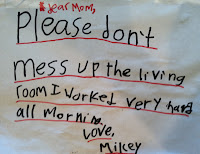 Dear Mom,
Please don't
mess up the living
room I worked very hard
all morning.
Love,
Mikey